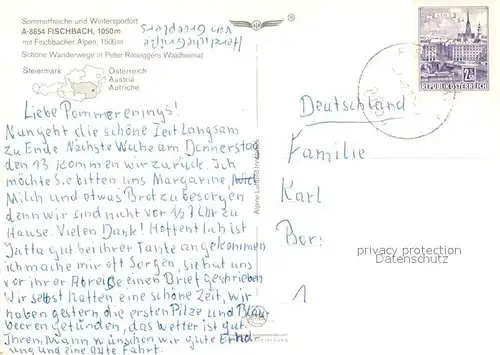 Sommerfrische und Wintersportort
A-8654 FISCHBACH, 1050 m
mit Fischbacher Alpen, 1500 m
Schöne Wanderwege in Peter Roseggers Waldheimat
Steiermark
Österreich
Austria
Autriche
Herzliche Grüße
von
Liebe Pommerenings!
Nun geht die schöne Zeit langsam
zu Ende Nächste Woche am Donnerstag
den 13 kommen wir zurück. Ich
möchte Sie bitten uns Margarine,
Milch und etwas Brot zu besorgen
denn wir sind nicht vor 1/2 7 Uhr zu
Hause. Vielen Dank! Hoffentlich ist
Jutta gut bei ihrer Tante angekommen
ich mache mir oft Sorgen, sie hat uns
vor ihrer Abreise einen Brief geschrieben
Wir selbst hatten eine schöne Zeit, wir
haben gestern die ersten Pilze und Blau-
beeren gefunden, das Wetter ist gut.
Ihren Mann wünschen wir gute Erhol-
ung und eine gute Fahrt.
Alpine Luftbild
REPUBLIK ÖSTERREICH
Deutschland
Familie
Karl
Bor:
1
privacy protection
Datenschutz